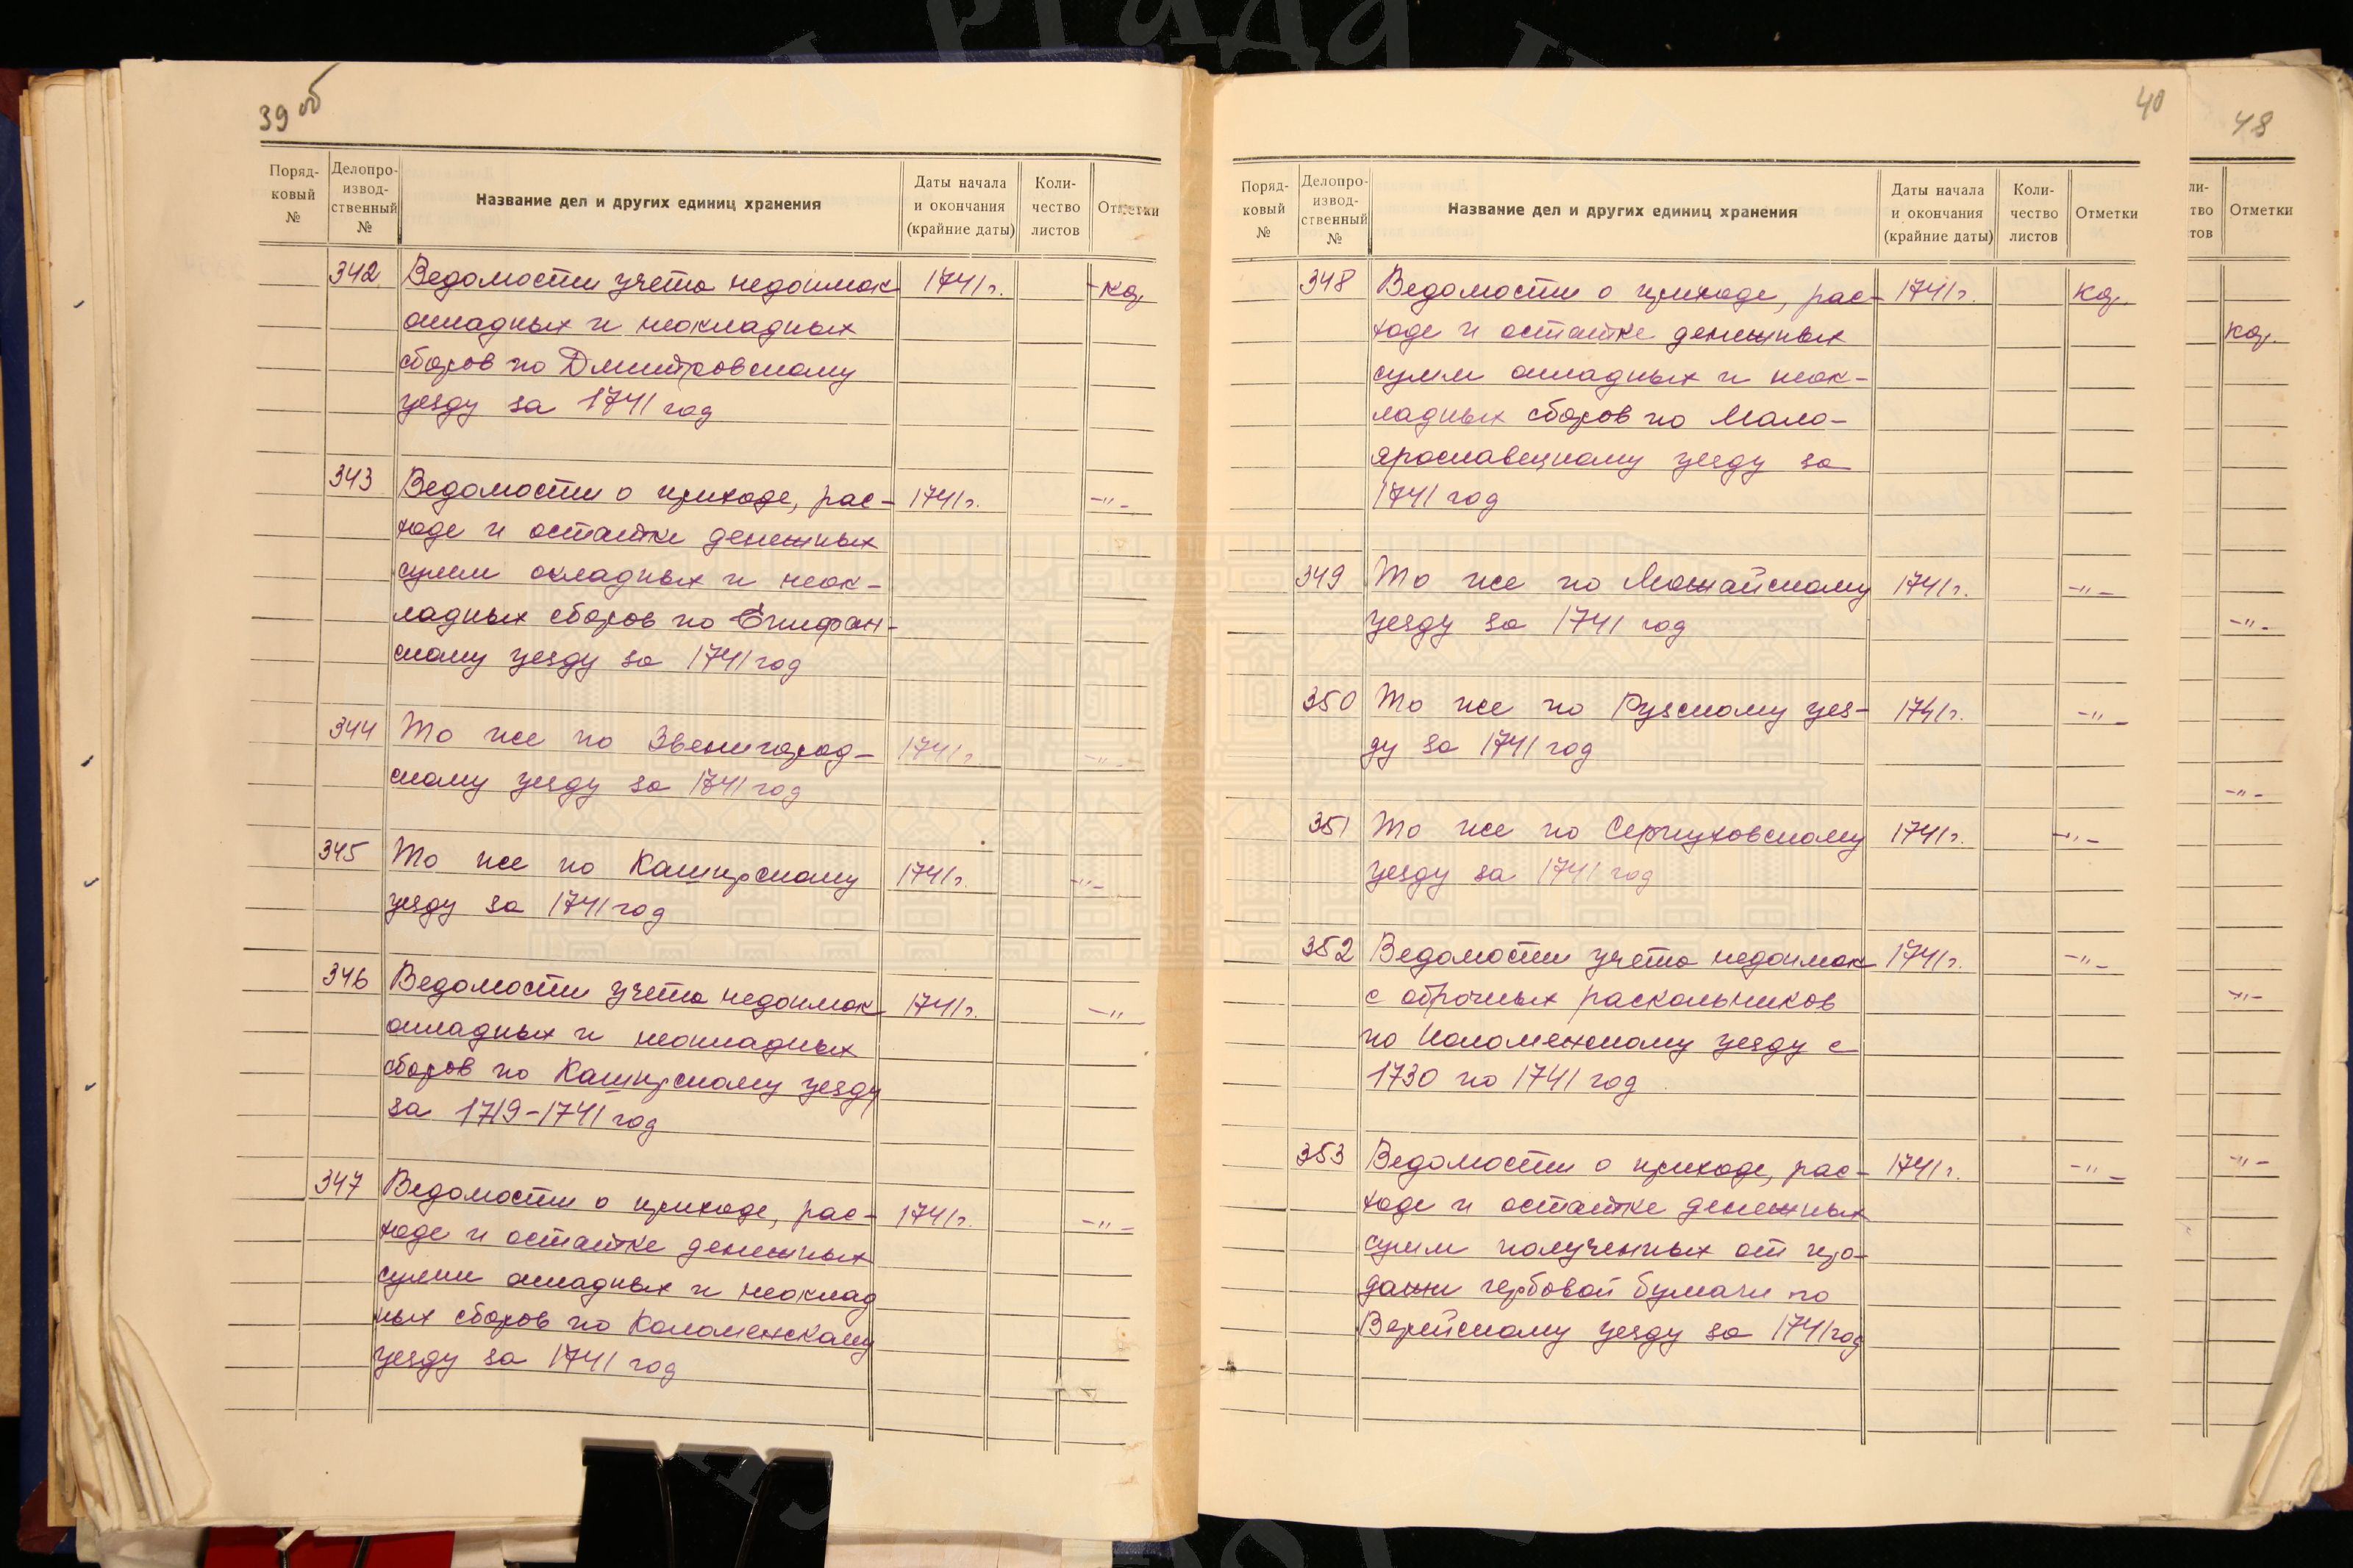 39 об
Поряд-
ковый
№
Делопро-
извод-
ственный
№
Название дел и других единиц хранения
Даты начала
и окончания
(крайние даты)
Коли-
чество
листов
Отметки
342 Ведомости учета недоимок 1741 г.
окладных и неокладных
сборов по Дмитровскому
уезду за 1741 год
343 Ведомости о приходе, рас- 1741 г. -"-
ходе и остатке денежных
сумм окладных и неок-
ладных сборов по Епифан-
скому уезду за 1741 год
344 То же по Звенигород- 1741 г. -"-
скому уезду за 1741 год
345 То же по Каширскому 1741 г. -"-
уезду за 1741 год
346 Ведомости учета недоимок 1741 г. -"-
окладных и неокладных
сборов по Каширскому уезду
за 1719-1741 год
347 Ведомости о приходе, рас- 1741 г. -"-
ходе и остатке денежных
сумм окладных и неоклад
ных сборов по Коломенскому
уезду за 1741 год
40
Поряд-
ковый
№
Делопро-
извод-
ственный
№
Название дел и других единиц хранения
Даты начала
и окончания
(крайние даты)
Коли-
чество
листов
Отметки
348 Ведомости о приходе, рас- 1741 г.
ходе и остатке денежных
сумм окладных и неок-
ладных сборов по Мало-
ярославецкому уезду за
1741 год
349 То же по Можайскому 1741 г. -"-
уезду за 1741 год
350 То же по Рузскому уез- 1741 г. -"-
ду за 1741 год
351 То же по Серпуховскому 1741 г. -"-
уезду за 1741 год
352 Ведомости учета недоимок 1741 г. -"-
с оброчных раскольников
по Коломенскому уезду с
1730 по 1741 год
353 Ведомости о приходе, рас- 1741 г. -"-
ходе и остатке денежных
сумм полученных от про-
дажи гербовой бумаги по
Верейскому уезду за 1741 год
48
ли-
тво
тов
Отметки
-"-
-"-
-"-
-"-